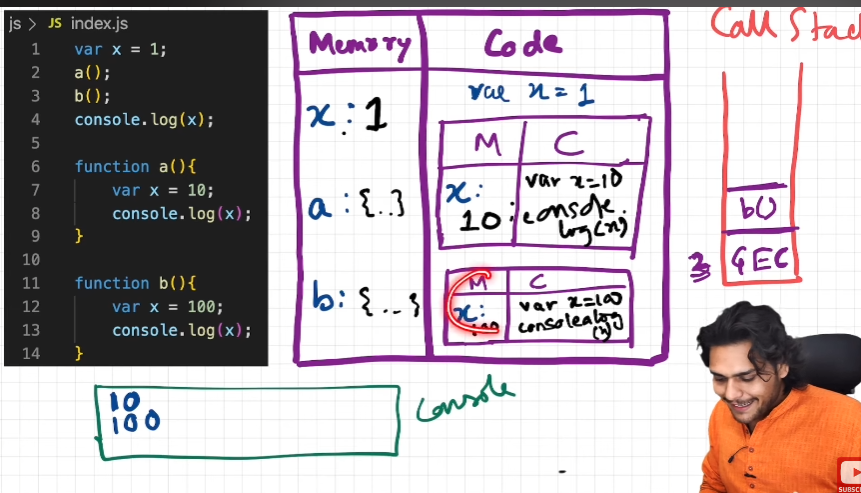 js > JS index.js
1 var x = 1;
2 a();
3 b();
4 console.log(x);
5
6 function a(){
7 var x = 10;
8 console.log(x);
9 }
10
11 function b(){
12 var x = 100;
13 console.log(x);
14 }
Memory Code
x: 1
var x = 1
M C
x: 10:
var x=10
console.
log(x)
a: {..}
b: {...}
M C
x: 100
var x=100
console.log
(x)
Call Stac
b()
GEC
3
10
100
Console
SUBSC